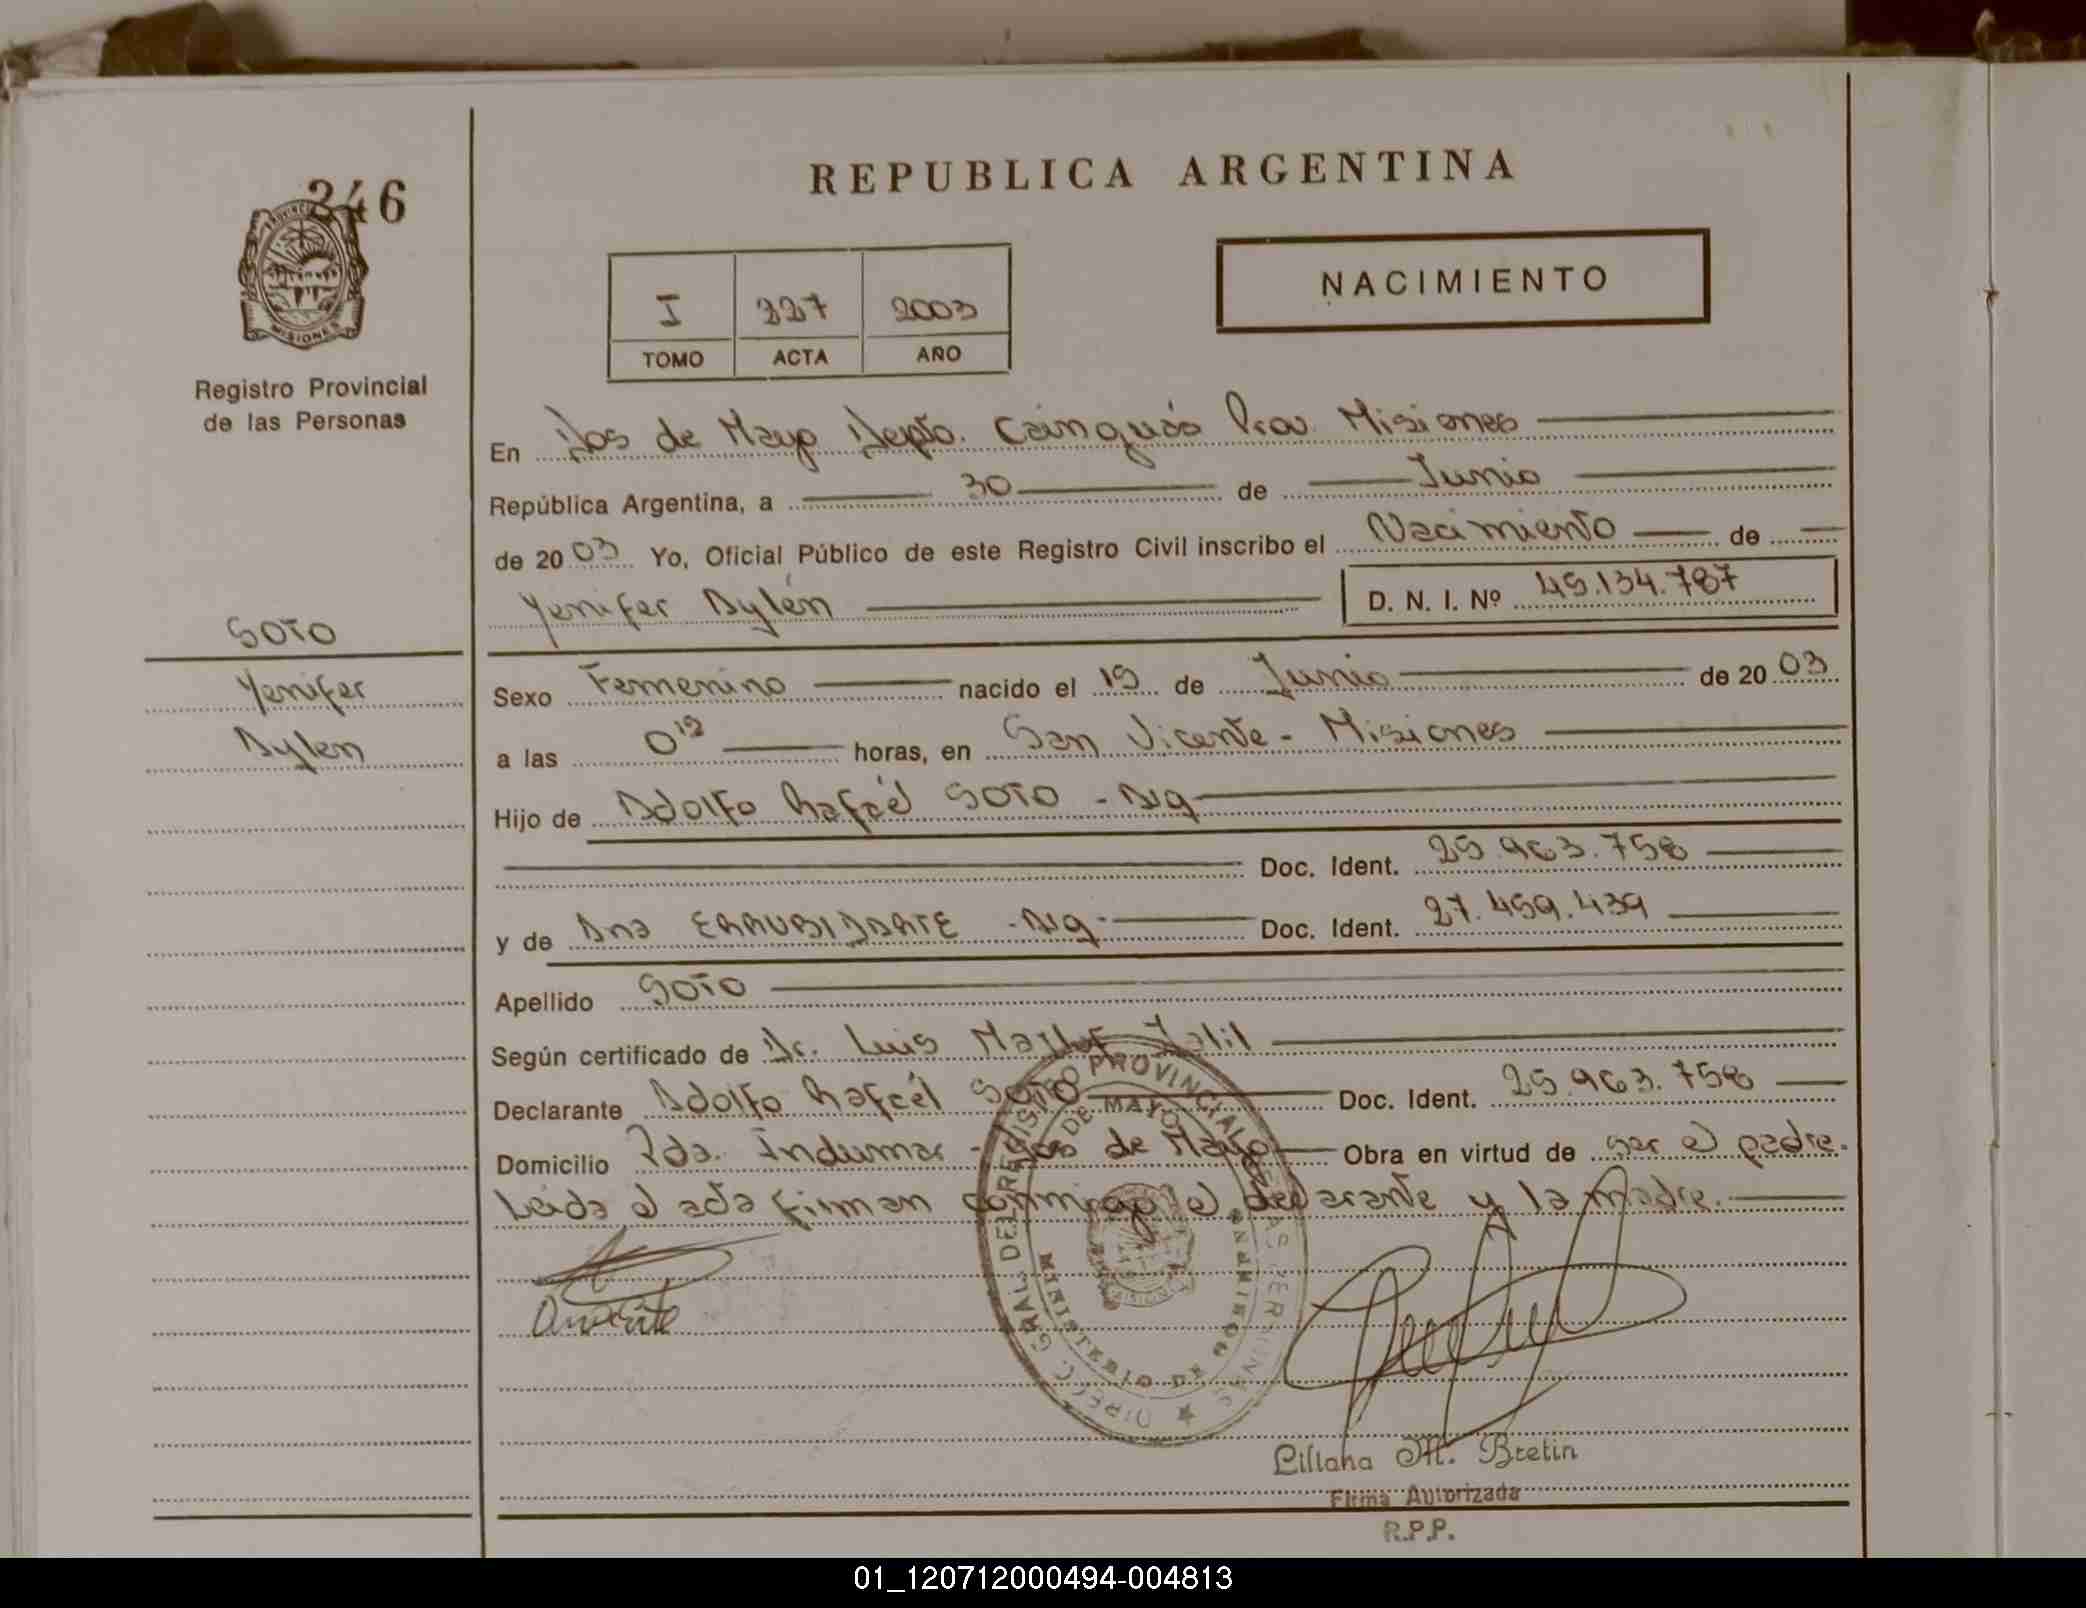 246
REPUBLICA ARGENTINA
PROVINCIA
MISIONES
Registro Provincial
de las Personas
I 227 2003
TOMO ACTA AÑO
NACIMIENTO
En Dos de Mayo Depto. Cainguás Prov. Misiones
República Argentina, a 30 de Junio
de 2003 Yo, Oficial Público de este Registro Civil inscribo el Nacimiento de
Yenifer Aylén D. N. I. Nº 45.134.787
SOTO
Yenifer
Aylen
Sexo Femenino nacido el 15 de Junio de 2003
a las 0 horas, en San Vicente - Misiones
Hijo de Adolfo Rafaél SOTO - Arg
Doc. Ident. 25.963.758
y de Ana ERRUBIDARTE - Arg - Doc. Ident. 27.459.439
Apellido SOTO
Según certificado de Dr. Luis Jalil
Declarante Adolfo Rafaél SOTO Doc. Ident. 25.963.758
Domicilio Rda. Indumar - Dos de Mayo Obra en virtud de ser el padre.
Leída el acta firman conmigo el declarante y la madre.
DIRECC. GRAL. DEL REGISTRO PROVINCIAL DE LAS PERSONAS
DOS DE MAYO
MINISTERIO DE GOBIERNO
Liliana M. Bretin
Firma Autorizada
R.P.P.
01_120712000494-004813